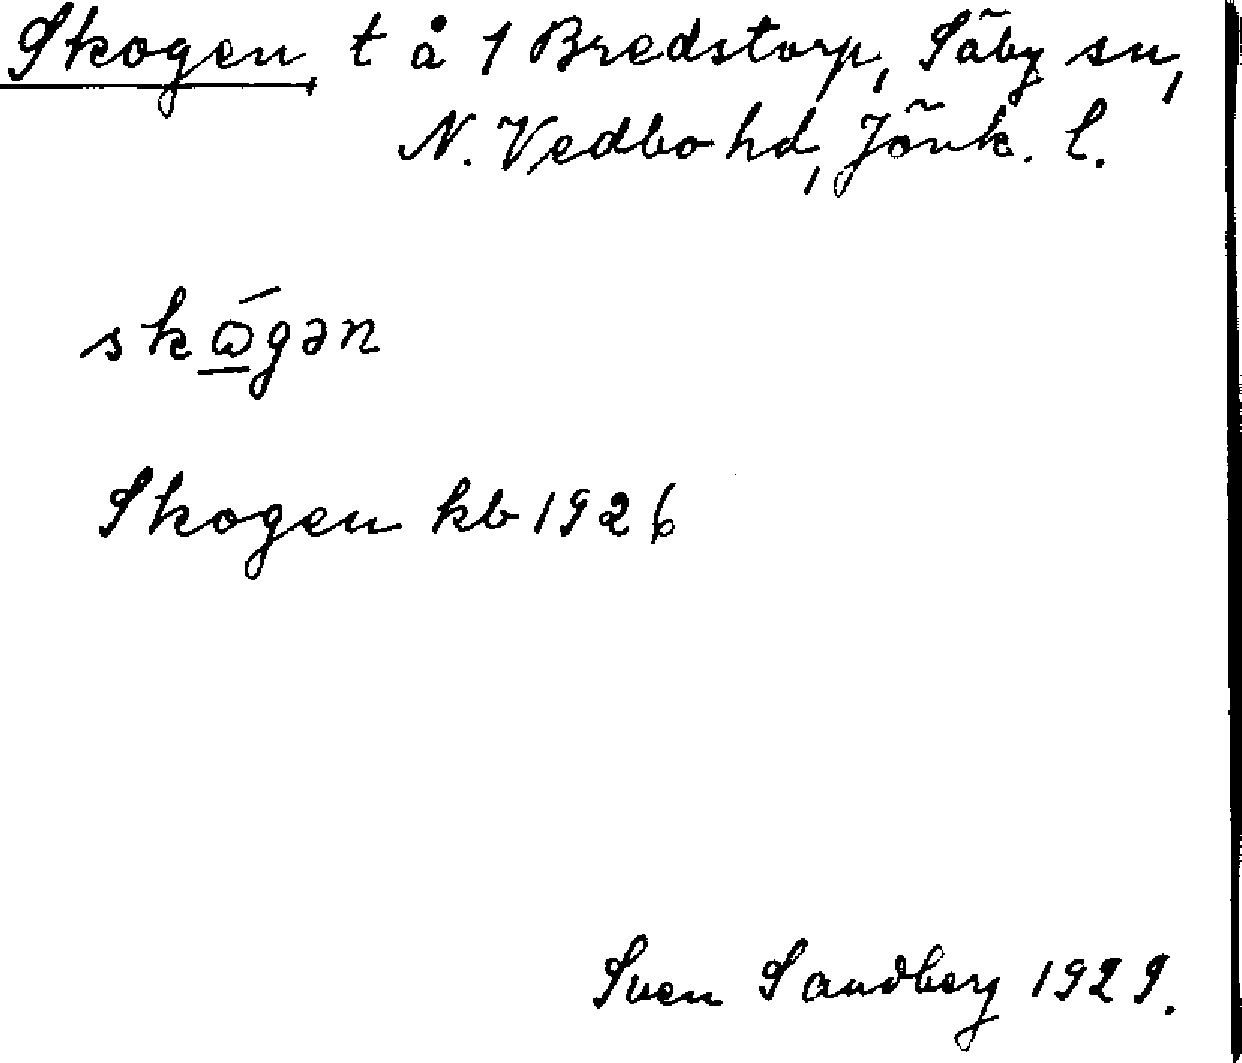 Skogen, t å 1 Bredstorp, Säby sn,
N. Vedbo hd, Jönk. l.
skώ̲gən
Skogen kb 1926
Sven Sandberg 1929.